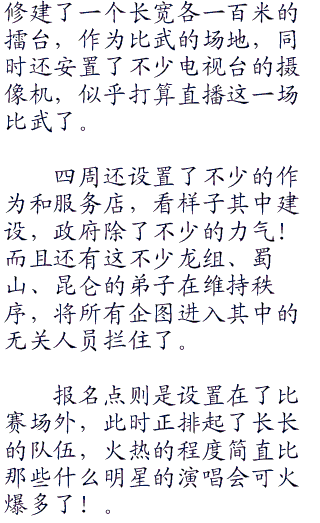 修建了一个长宽各一百米的
擂台，作为比武的场地，同
时还安置了不少电视台的摄
像机，似乎打算直播这一场
比武了。
四周还设置了不少的作
为和服务店，看样子其中建
设，政府除了不少的力气！
而且还有这不少龙组、蜀
山、昆仑的弟子在维持秩
序，将所有企图进入其中的
无关人员拦住了。
报名点则是设置在了比
赛场外，此时正排起了长长
的队伍，火热的程度简直比
那些什么明星的演唱会可火
爆多了！。